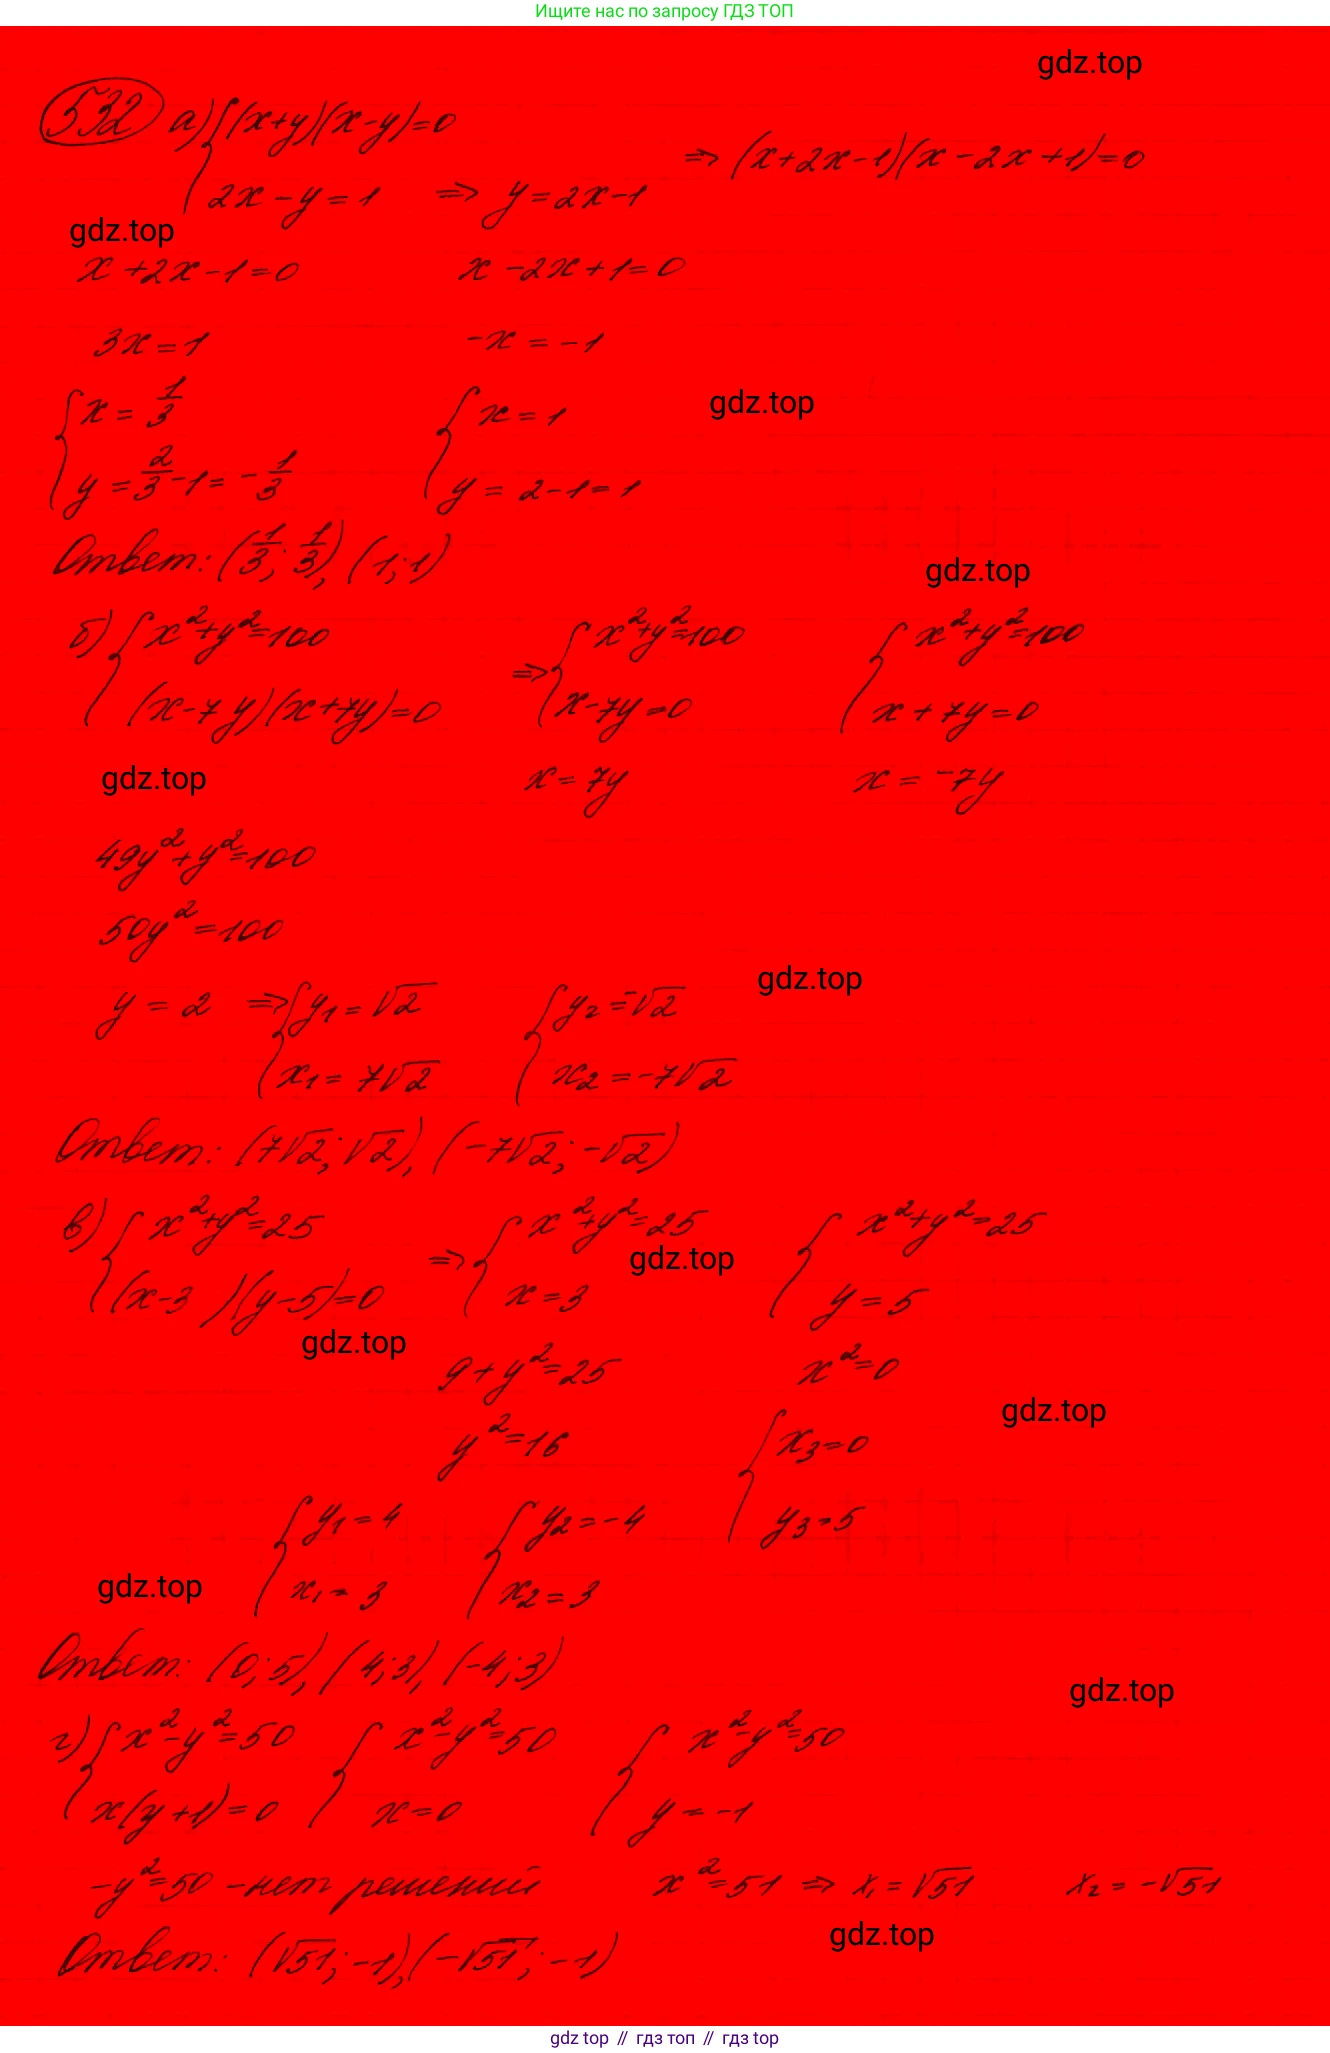 Ищите нас по запросу ГДЗ ТОП
gdz.top
532 а) { (x+y)(x-y)=0
2x-y=1 => y=2x-1 => (x+2x-1)(x-2x+1)=0
gdz.top
x+2x-1=0 x-2x+1=0
3x=1 -x=-1
{ x=1/3 { x=1 gdz.top
y=2/3-1=-1/3 y=2-1=1
Ответ: (1/3; 1/3), (1;1)
gdz.top
б) { x²+y²=100 => { x²+y²=100 { x²+y²=100
(x-7y)(x+7y)=0 x-7y=0 x+7y=0
gdz.top x=7y x=-7y
49y²+y²=100
50y²=100
gdz.top
y=2 => { y₁=√2 { y₂=-√2
x₁=7√2 x₂=-7√2
Ответ: (7√2; √2), (-7√2; -√2)
в) { x²+y²=25 => { x²+y²=25 { x²+y²=25
gdz.top
(x-3 )(y-5)=0 x=3 y=5
gdz.top
9+y²=25 x²=0
gdz.top
y²=16 { x₃=0
{ y₁=4 { y₂=-4 y₃=5
gdz.top
x₁=3 x₂=3
Ответ: (0;5), (4;3), (-4;3)
gdz.top
г) { x²-y²=50 { x²-y²=50 { x²-y²=50
x(y+1)=0 x=0 y=-1
-y²=50 -нет решений x²=51 => x₁=√51 x₂=-√51
gdz.top
Ответ: (√51; -1), (-√51; -1)
gdz top // гдз топ // гдз top